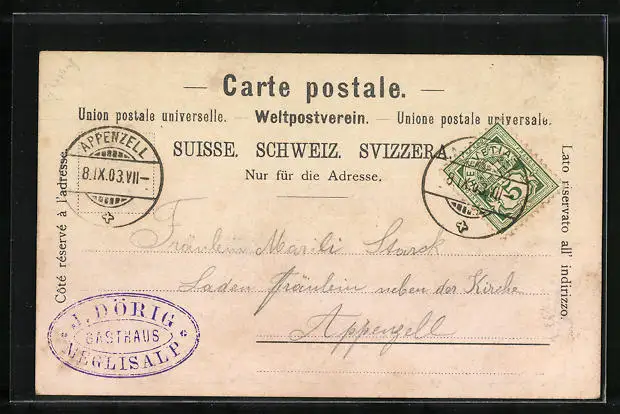 Carte postale.
Union postale universelle. — Weltpostverein. — Unione postale universale.
SUISSE. SCHWEIZ. SVIZZERA.
Nur für die Adresse.
Côté réservé à l'adresse.
Lato riservato all' indirizzo.
APPENZELL
8.IX.03.VII—
HELVETIA
5
Fräulein Marili Stark
Laden Fräulein neben der Kirche
Appenzell
J. DÖRIG
GASTHAUS
MEGLISALP